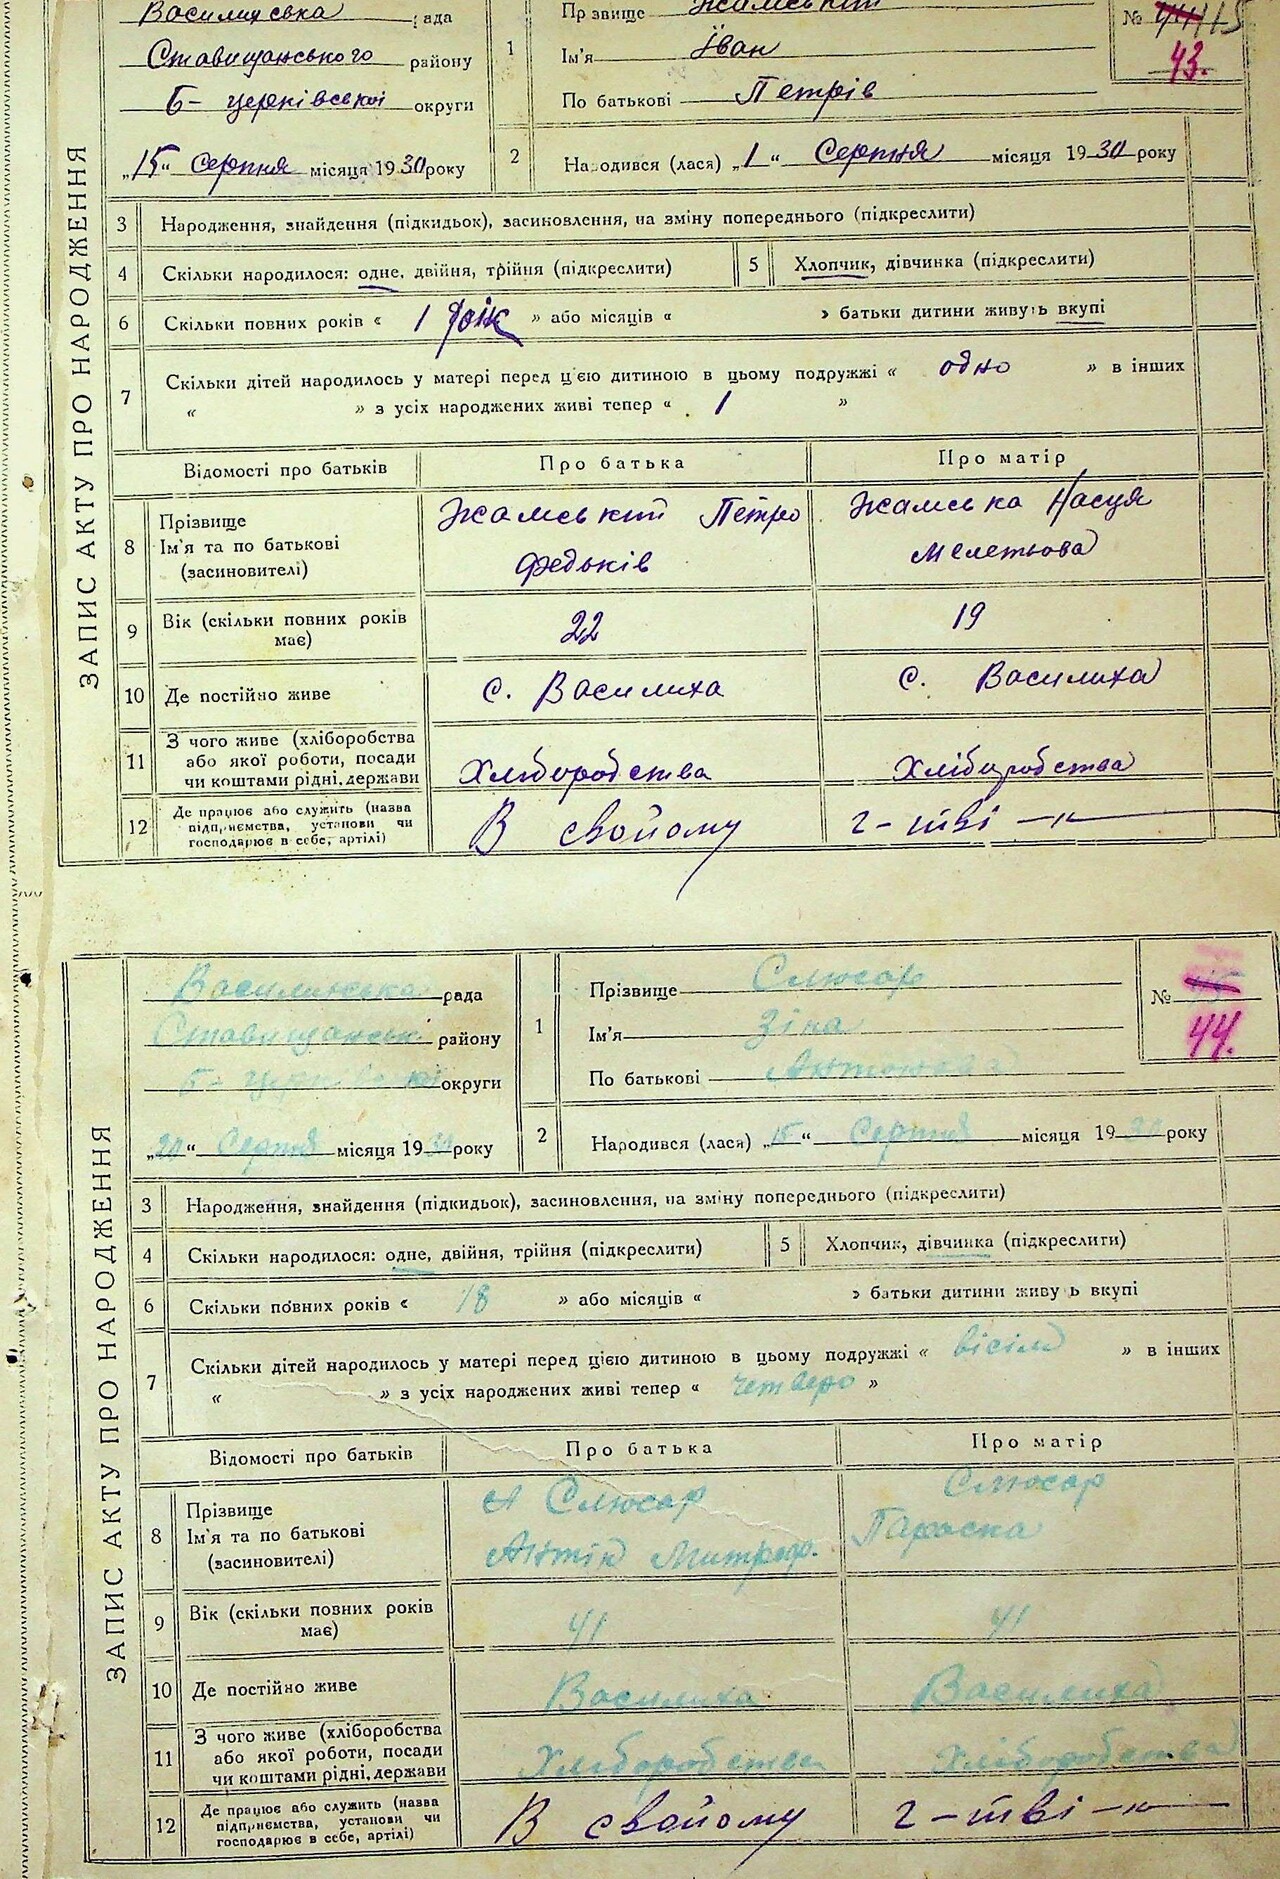 ЗАПИС АКТУ ПРО НАРОДЖЕННЯ
рада
Ставищанського району
Б- церківської округи
„15“ Серпня місяця 1930 року
1
Прізвище Жамський
Ім'я Іван
По батькові Петрів
№ 15
43.
2 Народився (лася) „1“ Серпня місяця 1930 року
3 Народження, знайдення (підкидьок), засиновлення, на зміну попереднього (підкреслити)
4 Скільки народилося: одне, двійня, трійня (підкреслити) 5 Хлопчик, дівчинка (підкреслити)
6 Скільки повних років « 1 рік » або місяців « » батьки дитини живуть вкупі
7 Скільки дітей народилось у матері перед цією дитиною в цьому подружжі « одно » в інших
« » з усіх народжених живі тепер « 1 »
Відомості про батьків Про батька Про матір
8 Прізвище Ім'я та по батькові (засиновителі)
Жамський Петро Федьків
Жамська Насця Мелетьова
9 Вік (скільки повних років має) 22 19
10 Де постійно живе с. Василиха с. Василиха
11 З чого живе (хліборобства або якої роботи, посади чи коштами рідні, держави Хліборобства Хліборобства
12 Де працює або служить (назва підприємства, установи чи господарює в себе, артілі) В свойому г-тві —„—
ЗАПИС АКТУ ПРО НАРОДЖЕННЯ
рада
району
Б- округи
„20“ Серпня місяця 1930 року
1
Прізвище Слюсар
Ім'я Зіна
По батькові Антонова
№ 15
44.
2 Народився (лася) „15“ Серпня місяця 1930 року
3 Народження, знайдення (підкидьок), засиновлення, на зміну попереднього (підкреслити)
4 Скільки народилося: одне, двійня, трійня (підкреслити) 5 Хлопчик, дівчинка (підкреслити)
6 Скільки повних років « 18 » або місяців « » батьки дитини живуть вкупі
7 Скільки дітей народилось у матері перед цією дитиною в цьому подружжі « вісім » в інших
« » з усіх народжених живі тепер « четверо »
Відомості про батьків Про батька Про матір
8 Прізвище Ім'я та по батькові (засиновителі)
Слюсар Антін Митроф.
Слюсар Параска
9 Вік (скільки повних років має) 41 41
10 Де постійно живе Василиха Василиха
11 З чого живе (хліборобства або якої роботи, посади чи коштами рідні, держави Хліборобства Хліборобства
12 Де працює або служить (назва підприємства, установи чи господарює в себе, артілі) В свойому г-тві —„—